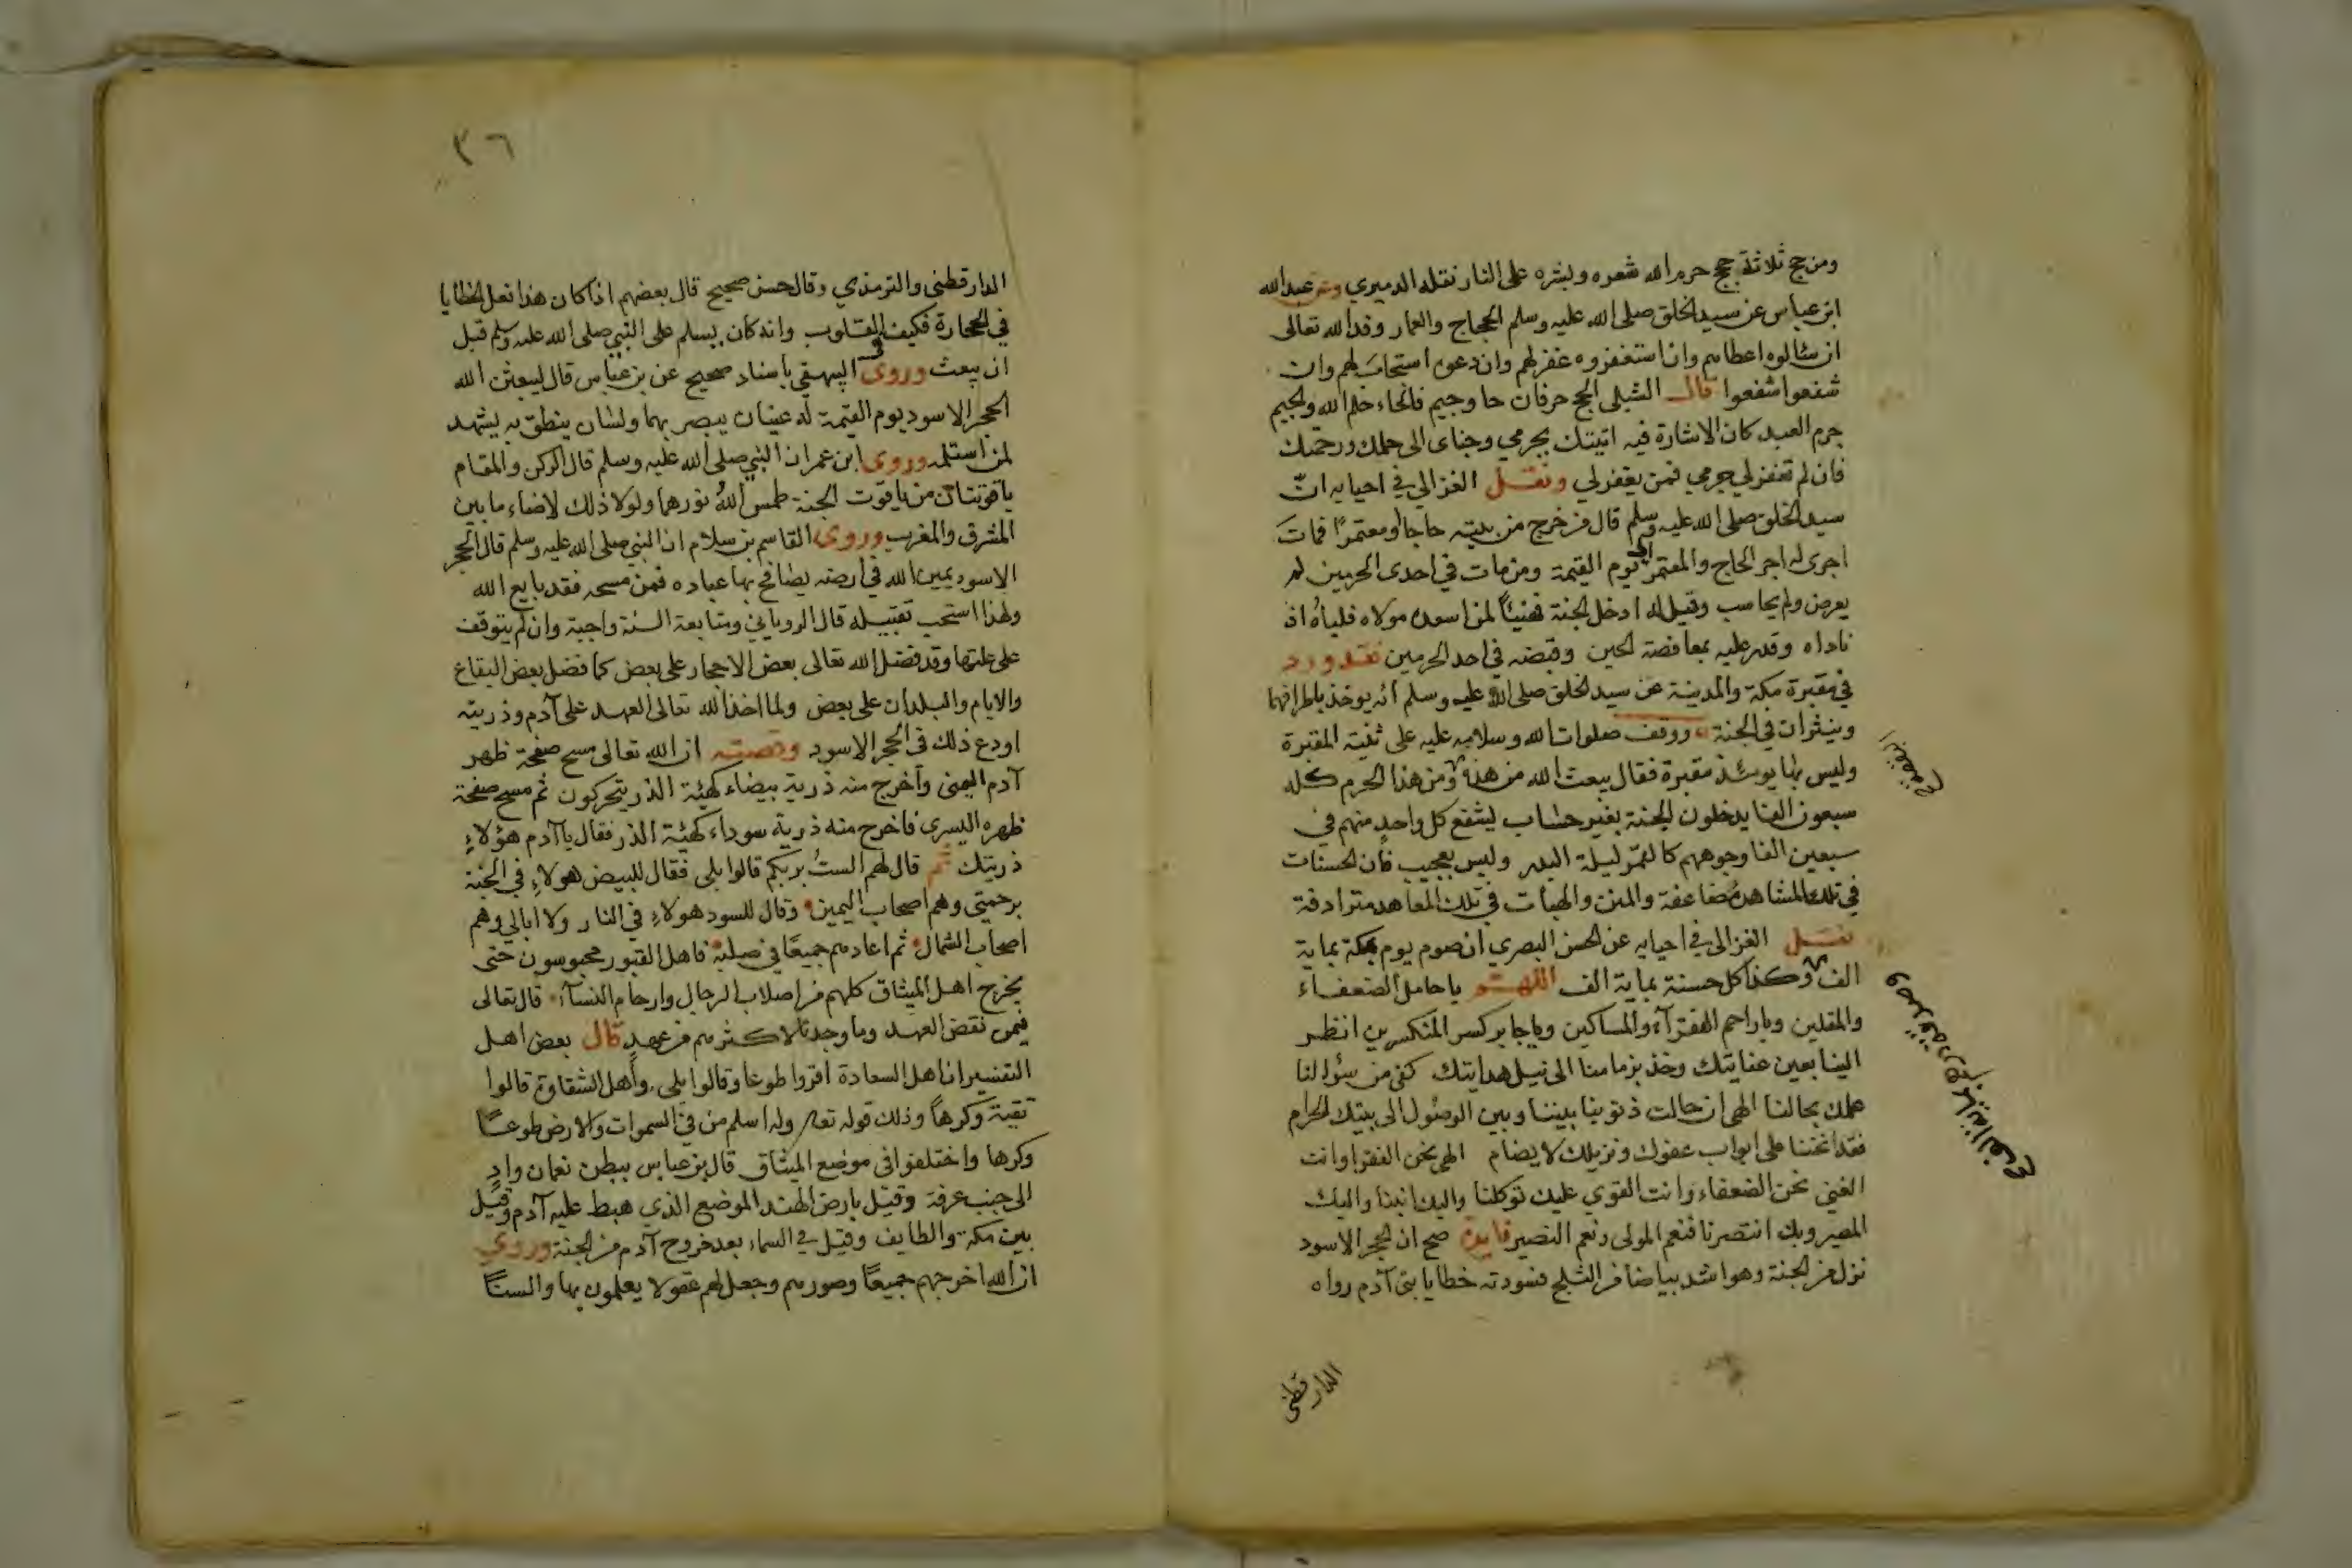 ومن حج ثلاثة حجج حرم الله شعره وبشره على النار نقله الدميري وعن عبدالله
ابن عباس عن سيد الخلق صلى الله عليه وسلم الحجاج والعمار وفد الله تعالى
ان سالوه اعطاهم وان استغفروه غفر لهم وان دعوه استجاب لهم وان
شفعوا شفعوا قال الشبلي الحج حرفان حا وجيم فالحاء حلم الله والجيم
جرم العبد كان الاشارة فيه اتيتك بجرمي وجناي الى حلمك ورحمتك
فان لم تغفر لي جرمي فمن يغفر لي ونقل الغزالي في احيايه انّ
سيد الخلق صلى الله عليه وسلم قال من خرج من بيته حاجا او معتمرًا فمات
اجرى له اجر الحاج والمعتمر الى يوم القيمة ومن مات في احدى الحرمين لم
يعرض ولم يحاسب وقيل له ادخل الجنة فهنيئًا لمن اسعده مولاه فلباه اذ
ناداه وقدر عليه بمعافصة الحين وقبضه في احد الحرمين فقد ورد
في مقبرة مكة والمدينة عن سيد الخلق صلى الله عليه وسلم انه يوخذ باطرافهما
وينثران في الجنة ووقف صلوات الله وسلامه عليه على ثنية المقبرة
وليس بها يومئذ مقبرة فقال يبعث الله من هذه ومن هذا الحرم كله
سبعون الفا يدخلون الجنة بغير حساب يشفع كل واحد منهم في
سبعين الفا وجوههم كالقمر ليلة البدر وليس بعجيب فان الحسنات
في تلك المشاهد مضاعفة والمنن والهبات في تلك المعاهد مترادفة
نقل الغزالى في احيايه عن الحسن البصري ان صوم يوم بمكة بماية
الف وكذا كل حسنة بماية الف اللهم يا حامل الضعفاء
والمقلين ويا راحم الفقرآء والمساكين ويا جابر كسر المنكسرين انظر
الينا بعين عنايتك وخذ بزمامنا الى نيل هدايتك كفى من سؤالنا
علمك بحالنا الهي ان حالت ذنوبنا بيننا وبين الوصول الى بيتك الحرام
فقد انخنا على ابواب عفوك ونزيلك لا يضام الهي نحن الفقرا وانت
الغني نحن الضعفاء وانت القوي عليك توكلنا واليك انبنا واليك
المصير وبك انتصرنا فنعم المولى ونعم النصير فايدة صح ان الحجر الاسود
نزل من الجنة وهو اشد بياضا من الثلج فسودته خطايا بني آدم رواه
الدارقطني
٣٦
الدارقطني والترمذي وقال حسن صحيح قال بعضهم اذا كان هذا فعل الخطايا
في الحجارة فكيف القلوب وانه كان يسلم على النبي صلى الله عليه وسلم قبل
ان يبعث وروى البيهقي باسناد صحيح عن بن عباس قال ليبعثن الله
الحجر الاسود يوم القيمة له عينان يبصر بهما ولسان ينطق به يشهد
لمن استلمه وروى ابن عمر ان النبي صلى الله عليه وسلم قال الركن والمقام
ياقوتتان من ياقوت الجنة طمس الله نورهما ولولا ذلك لاضاء ما بين
المشرق والمغرب وروى القاسم بن سلام ان النبي صلى الله عليه وسلم قال الحجر
الاسود يمين الله في ارضه يصافح بها عباده فمن مسحه فقد بايع الله
ولهذا استحب تقبيله قال الروياني ومتابعة السنة واجبة وان لم يتوقف
على علتها وقد فضل الله تعالى بعض الاحجار على بعض كما فضل بعض البقاع
والايام والبلدان على بعض ولما اخذ الله تعالى العهد على آدم وذريته
اودع ذلك في الحجر الاسود وقصته ان الله تعالى مسح صفحة ظهر
آدم اليمنى واخرج منه ذرية بيضاء كهيئة الذر يتحركون ثم مسح صفحة
ظهره اليسرى فاخرج منه ذرية سوداء كهيئة الذر فقال يا آدم هؤلاءِ
ذريتك ثم قال لهم الستُ بربكم قالوا بلى فقال للبيض هولاءِ في الجنة
برحمتي وهم اصحاب اليمين وقال للسود هولاءِ في النار ولا ابالي وهم
اصحاب الشمال ثم اعادهم جميعًا في صلبه فاهل القبور محبوسون حتى
يخرج اهل الميثاق كلهم من اصلاب الرجال وارحام النسآء قال تعالى
فيمن نقض العهد وما وجدنا لاكثرهم من عهدٍ قال بعض اهل
التفسير ان اهل السعادة اقروا طوعًا وقالوا بلى واهل الشقاوة قالوا
تقية وكرهاً وذلك قوله تعا وله اسلم من في السموات والارض طوعًا
وكرها واختلفوا في موضع الميثاق قال بن عباس ببطن نعمان وادٍ
الى جنب عرفة وقيل بارض الهند الموضع الذي هبط عليه آدم وقيل
بين مكة والطايف وقيل في السماء بعد خروج آدم من الجنة وروي
ان الله اخرجهم جميعًا وصورهم وجعل لهم عقولا يعلمون بها والسنًا